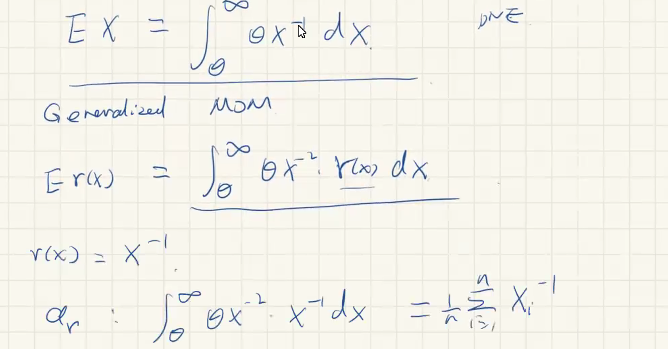 EX = ∫_θ^∞ θx⁻¹ dx   DNE
Generalized MOM
E r(X) = ∫_θ^∞ θx⁻² · r(x) dx
r(x) = x⁻¹
α_r : ∫_θ^∞ θx⁻² · x⁻¹ dx = 1/n ∑_{i=1}^n X_i⁻¹